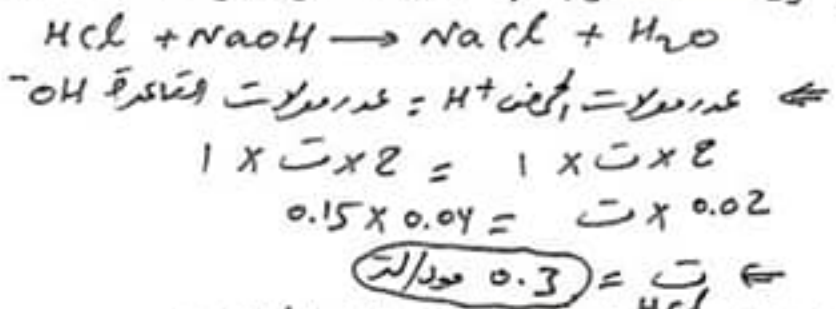 HCl + NaOH → NaCl + H₂O
⇐ عدد مولات الحمض H⁺ = عدد مولات القاعدة OH⁻
ح × ت × 1 = ح × ت × 1
0.02 × ت = 0.04 × 0.15
⇐ ت HCl = 0.3 مول/لتر